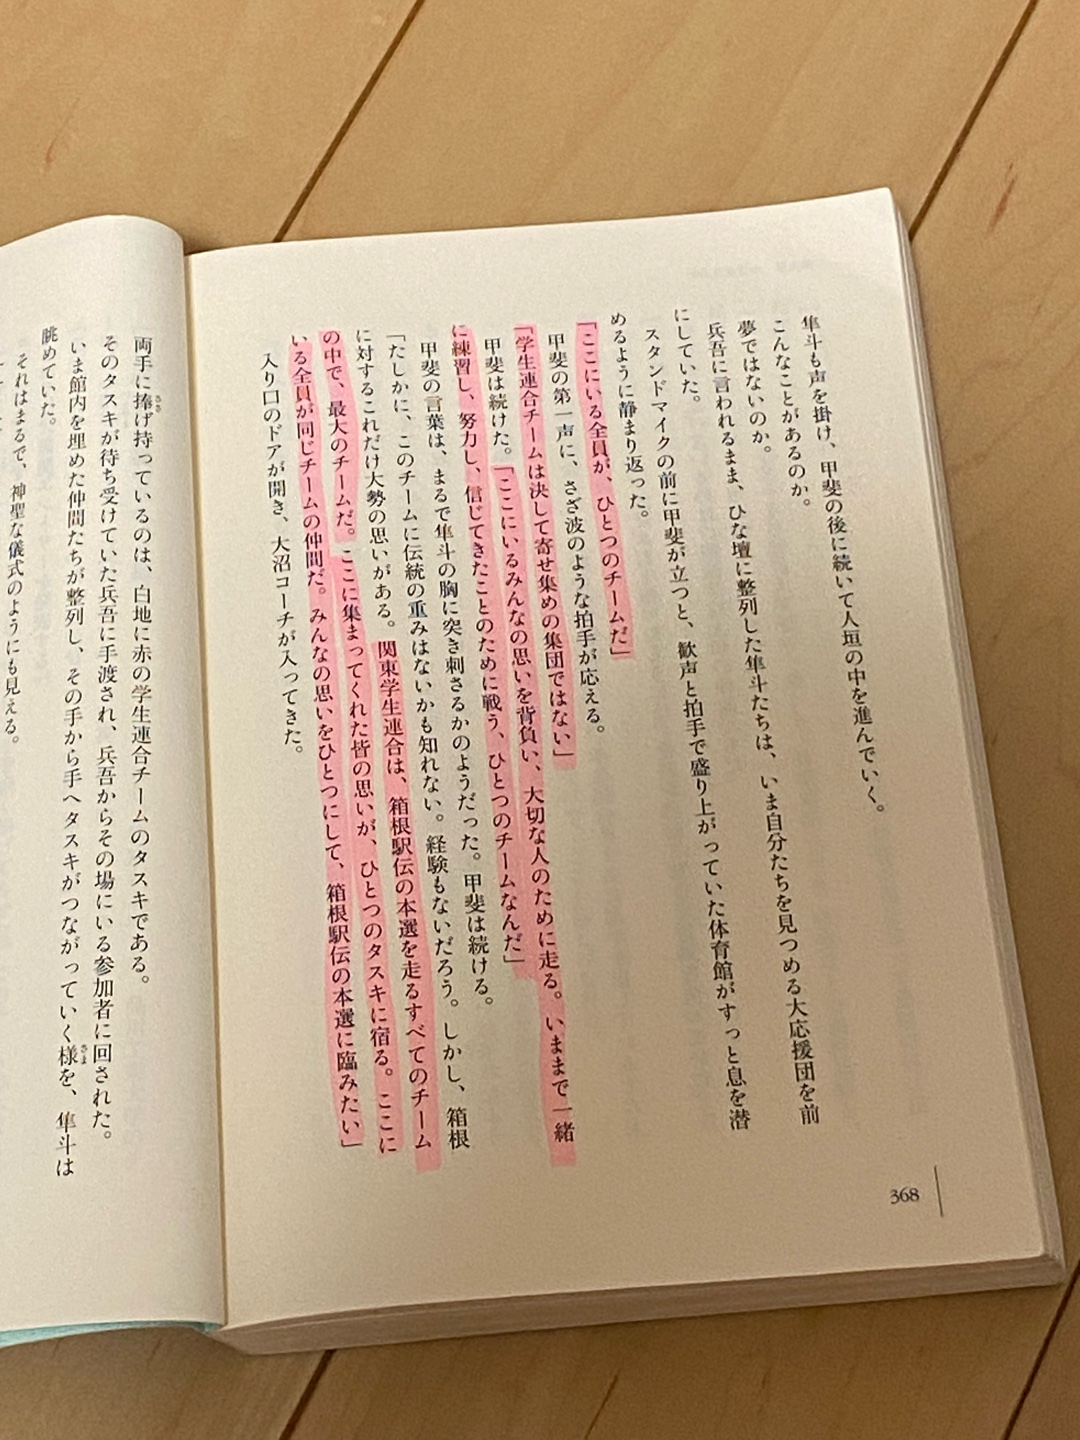 隼斗も声を掛け、甲斐の後に続いて人垣の中を進んでいく。
こんなことがあるのか。
夢ではないのか。
兵吾に言われるまま、ひな壇に整列した隼斗たちは、いま自分たちを見つめる大応援団を前
にしていた。
スタンドマイクの前に甲斐が立つと、歓声と拍手で盛り上がっていた体育館がすっと息を潜
めるように静まり返った。
「ここにいる全員が、ひとつのチームだ」
甲斐の第一声に、さざ波のような拍手が応える。
「学生連合チームは決して寄せ集めの集団ではない」
甲斐は続けた。「ここにいるみんなの思いを背負い、大切な人のために走る。いままで一緒
に練習し、努力し、信じてきたことのために戦う、ひとつのチームなんだ」
甲斐の言葉は、まるで隼斗の胸に突き刺さるかのようだった。甲斐は続ける。
「たしかに、このチームに伝統の重みはないかも知れない。経験もないだろう。しかし、箱根
に対するこれだけ大勢の思いがある。関東学生連合は、箱根駅伝の本選を走るすべてのチーム
の中で、最大のチームだ。ここに集まってくれた皆の思いが、ひとつのタスキに宿る。ここに
いる全員が同じチームの仲間だ。みんなの思いをひとつにして、箱根駅伝の本選に臨みたい」
入り口のドアが開き、大沼コーチが入ってきた。
368
両手に捧げ持っているのは、白地に赤の学生連合チームのタスキである。
そのタスキが待ち受けていた兵吾に手渡され、兵吾からその場にいる参加者に回された。
いま館内を埋めた仲間たちが整列し、その手から手へタスキがつながっていく様を、隼斗は
眺めていた。
それはまるで、神聖な儀式のようにも見える。